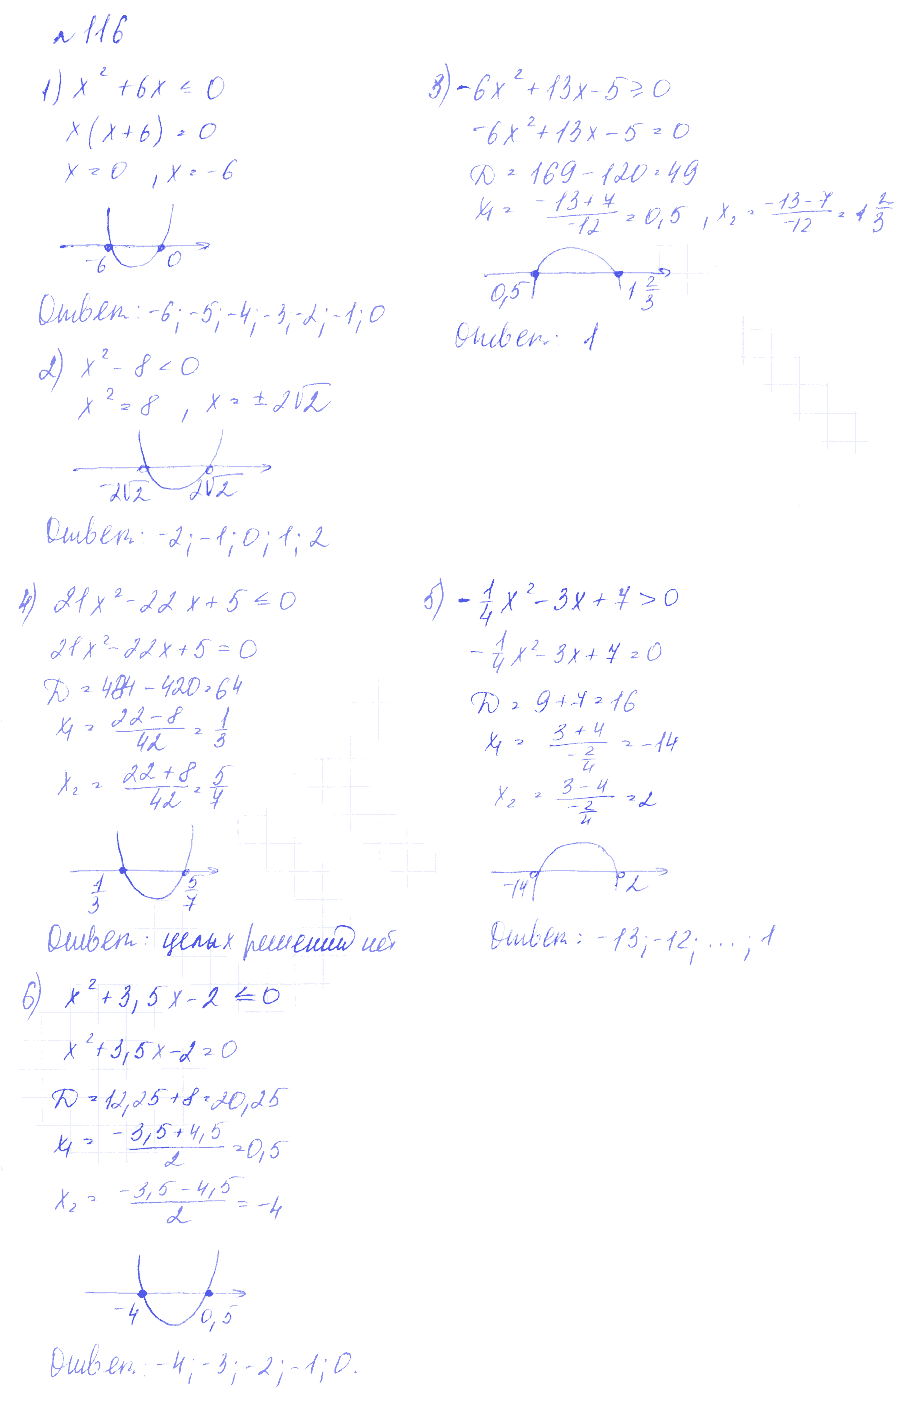 №116
1) x² + 6x ≤ 0
x(x+6) = 0
x = 0 , x = -6
-6 0
Ответ: -6; -5; -4; -3; -2; -1; 0
2) x² - 8 < 0
x² = 8 , x = ±2√2
-2√2 2√2
Ответ: -2; -1; 0; 1; 2
3) -6x² + 13x - 5 ≥ 0
-6x² + 13x - 5 = 0
D = 169 - 120 = 49
x₁ = (-13+7)/(-12) = 0,5 , x₂ = (-13-7)/(-12) = 1 2/3
0,5 1 2/3
Ответ: 1
4) 21x² - 22x + 5 ≤ 0
21x² - 22x + 5 = 0
D = 484 - 420 = 64
x₁ = (22-8)/42 = 1/3
x₂ = (22+8)/42 = 5/7
1/3 5/7
Ответ: целых решений нет
5) -1/4 x² - 3x + 7 > 0
-1/4 x² - 3x + 7 = 0
D = 9 + 7 = 16
x₁ = (3+4)/(-2/4) = -14
x₂ = (3-4)/(-2/4) = 2
-14 2
Ответ: -13; -12; ...; 1
6) x² + 3,5x - 2 ≤ 0
x² + 3,5x - 2 = 0
D = 12,25 + 8 = 20,25
x₁ = (-3,5+4,5)/2 = 0,5
x₂ = (-3,5-4,5)/2 = -4
-4 0,5
Ответ: -4; -3; -2; -1; 0.